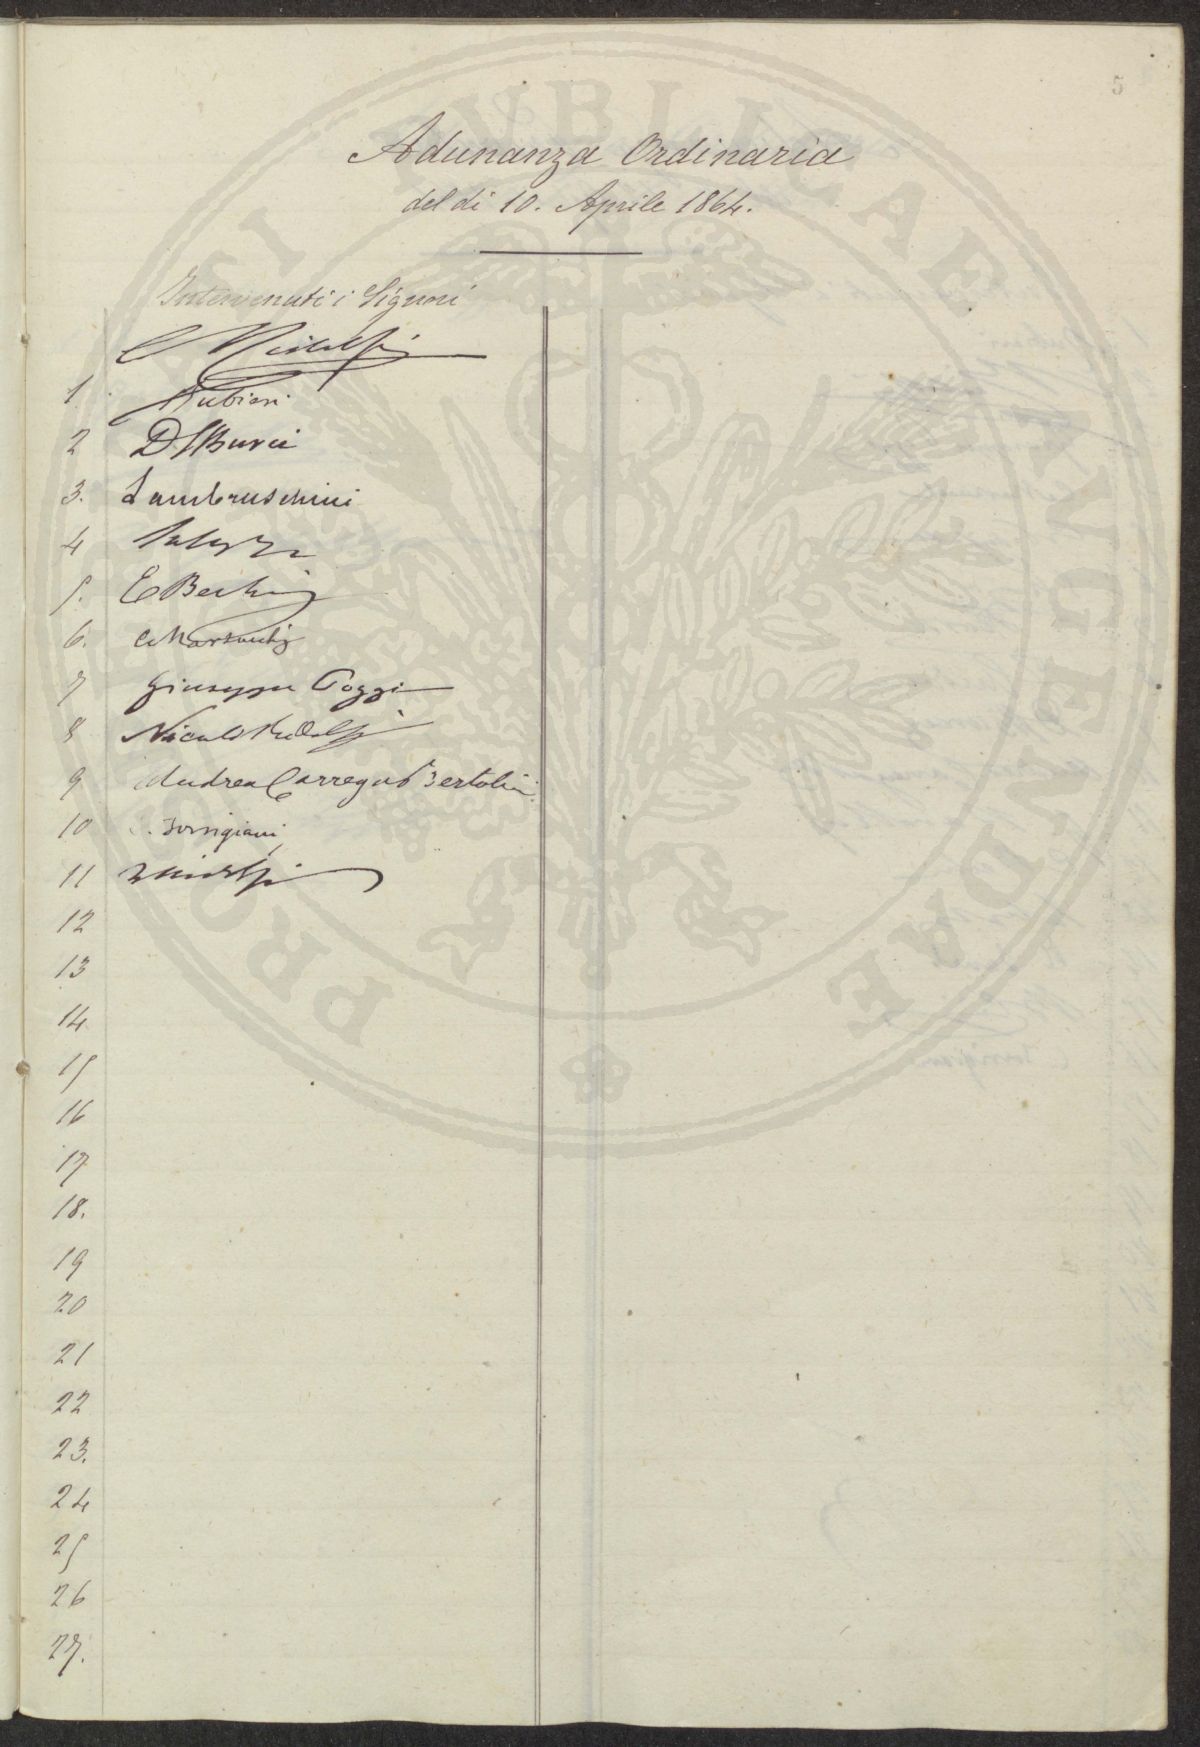 5
Adunanza Ordinaria
del dì 10. Aprile 1864.
Intervenuti i Signori
C Ridolfi
1 Rubieri
2 D. Burci
3. Lambruschini
4
5. E Bechi
6. C. Marsuchj
7 Giuseppe Poggi
8 Niccolò Ridolfi
9 Andrea Carrega Bertolini
10 C. Torrigiani
11 L Ridolfi
12
13
14
15
16
17
18.
19
20
21
22
23.
24
25
26
27.
PROSPERITATI PVBLICAE AVGENDAE